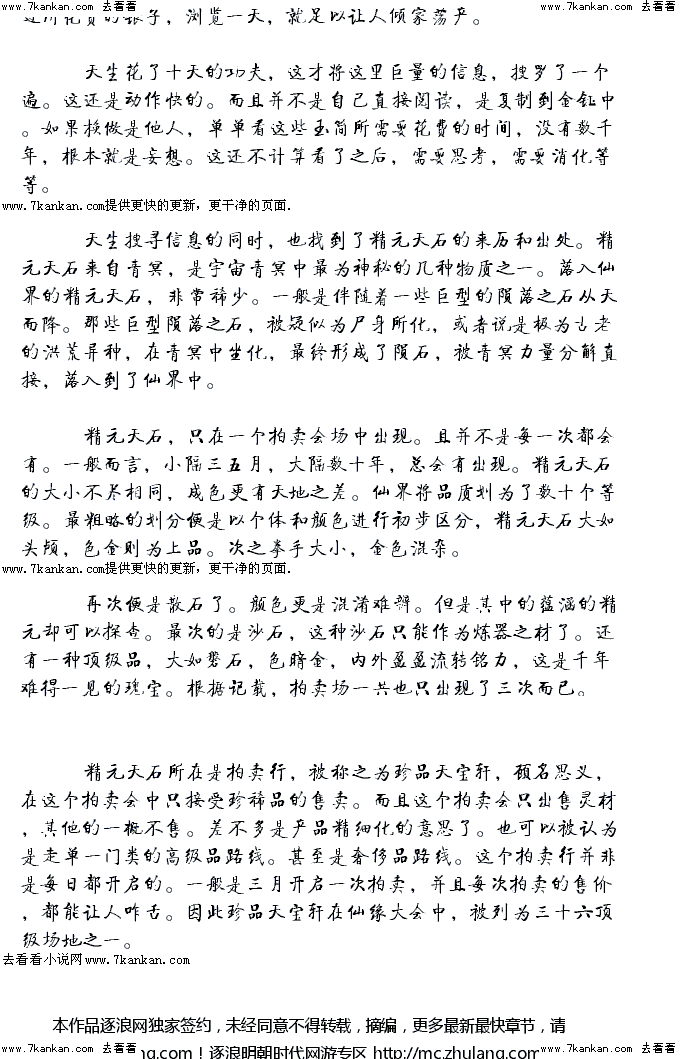 www.7kankan.com 去看看 www.7kankan.com 去看看
这所花费的银子，浏览一天，就足以让人倾家荡产。
天生花了十天的功夫，这才将这里巨量的信息，搜罗了一个
遍。这还是动作快的。而且并不是自己直接阅读，是复制到金钲中
。如果换做是他人，单单看这些玉简所需要花费的时间，没有数千
年，根本就是妄想。这还不计算看了之后，需要思考，需要消化等
等。
www.7kankan.com提供更快的更新，更干净的页面.
天生搜寻信息的同时，也找到了精元天石的来历和出处。精
元天石来自青冥，是宇宙青冥中最为神秘的几种物质之一。落入仙
界的精元天石，非常稀少。一般是伴随着一些巨型的陨落之石从天
而降。那些巨型陨落之石，被疑似为尸身所化，或者说是极为古老
的洪荒异种，在青冥中坐化，最终形成了陨石，被青冥力量分解直
接，落入到了仙界中。
精元天石，只在一个拍卖会场中出现。且并不是每一次都会
有。一般而言，小隔三五月，大隔数十年，总会有出现。精元天石
的大小不尽相同，成色更有天地之差。仙界将品质划为了数十个等
级。最粗略的划分便是以个体和颜色进行初步区分，精元天石大如
头颅，色金则为上品。次之拳手大小，金色混杂。
www.7kankan.com提供更快的更新，更干净的页面.
再次便是散石了。颜色更是混淆难辨。但是其中的蕴涵的精
元却可以探查。最次的是沙石，这种沙石只能作为炼器之材了。还
有一种顶级品，大如磐石，色暗金，内外盈盈流转铭力，这是千年
难得一见的瑰宝。根据记载，拍卖场一共也只出现了三次而已。
精元天石所在是拍卖行，被称之为珍品天宝轩，顾名思义，
在这个拍卖会中只接受珍稀品的售卖。而且这个拍卖会只出售灵材
，其他的一概不售。差不多是产品精细化的意思了。也可以被认为
是走单一门类的高级品路线。甚至是奢侈品路线。这个拍卖行并非
是每日都开启的。一般是三月开启一次拍卖，并且每次拍卖的售价
，都能让人咋舌。因此珍品天宝轩在仙缘大会中，被列为三十六顶
级场地之一。
去看看小说网www.7kankan.com
本作品逐浪网独家签约，未经同意不得转载，摘编，更多最新最快章节，请
www.7kankan.com 去看看 ng.com！逐浪明朝时代网游专区 http://mc.zhulang.com www.7kankan.com 去看看